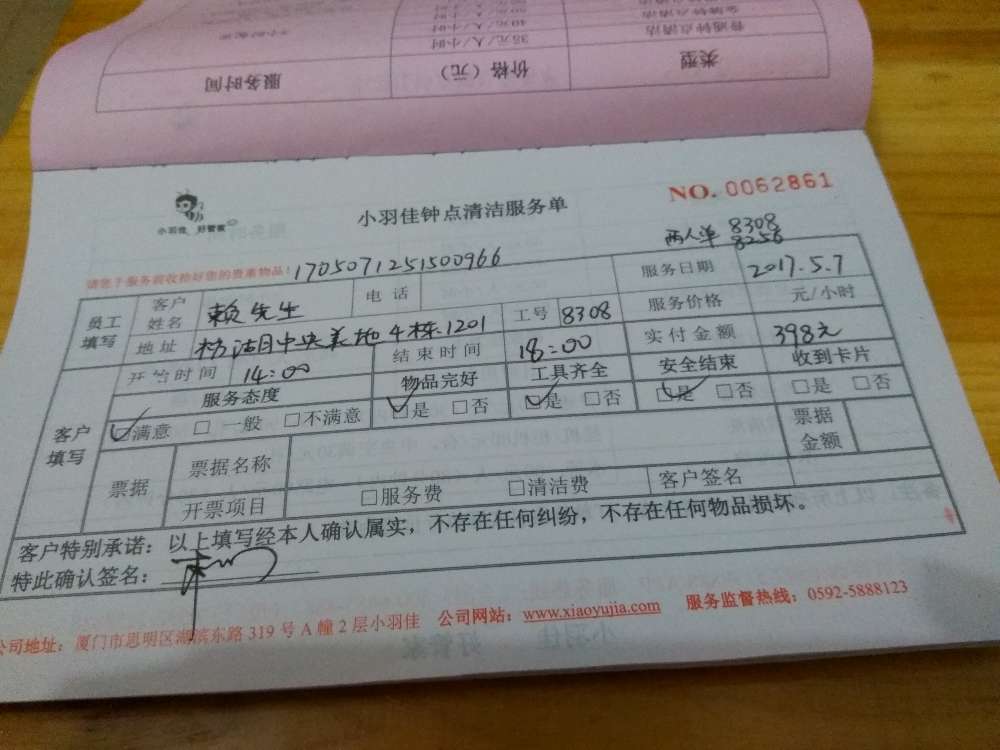 类型 价格（元） 服务时间
普通钟点清洁 35元/人/小时
40元/人/小时
NO. 0062861
小羽佳 好管家
小羽佳钟点清洁服务单
两人单 8308
8256
请您于服务前收拾好您的贵重物品! 1705071251500966
员工填写 客户姓名 赖先生 电话 服务日期 2017.5.7
地址 杨诘月中央美地4栋.1201 工号 8308 服务价格 元/小时
开始时间 14:00 结束时间 18:00 实付金额 398元
客户填写 服务态度 物品完好 工具齐全 安全结束 收到卡片
☑满意 □一般 □不满意 ☑是 □否 ☑是 □否 ☑是 □否 □是 □否
票据 票据名称 票据金额
开票项目 □服务费 □清洁费 客户签名
客户特别承诺：以上填写经本人确认属实，不存在任何纠纷，不存在任何物品损坏。
特此确认签名：
公司地址：厦门市思明区湖滨东路 319 号 A 幢 2 层小羽佳 公司网站：www.xiaoyujia.com 服务监督热线：0592-5888123